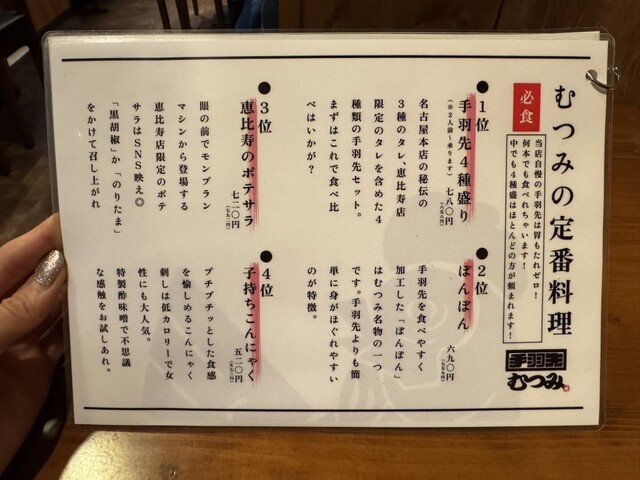 むつみの定番料理
必食
当店自慢の手羽先は胃もたれゼロ！
何本でも食べれちゃいます！
中でも４種盛はほとんどの方が頼まれます！
手羽先
むつみ
●１位
手羽先４種盛り
（※２人前〜承ります）
七八〇円
（八五八円）
名古屋本店の秘伝の
３種のタレ、恵比寿店
限定のタレを含めた４
種類の手羽先セット。
まずはこれで食べ比
べはいかが？
●２位
ぽんぽん
六九〇円
（七五九円）
手羽先を食べやすく
加工した「ぽんぽん」
はむつみ名物の一つ
です。手羽先よりも簡
単に身がほぐれやすい
のが特徴。
●３位
恵比寿のポテサラ
七二〇円
（七九二円）
眼の前でモンブラン
マシンから登場する
恵比寿店限定のポテ
サラはＳＮＳ映え◎
「黒胡椒」か「のりたま」
をかけて召し上がれ
●４位
子持ちこんにゃく
五二〇円
（五七二円）
プチプチッとした食感
を愉しめるこんにゃく
刺しは低カロリーで女
性にも大人気。
特製酢味噌で不思議
な感触をお試しあれ。